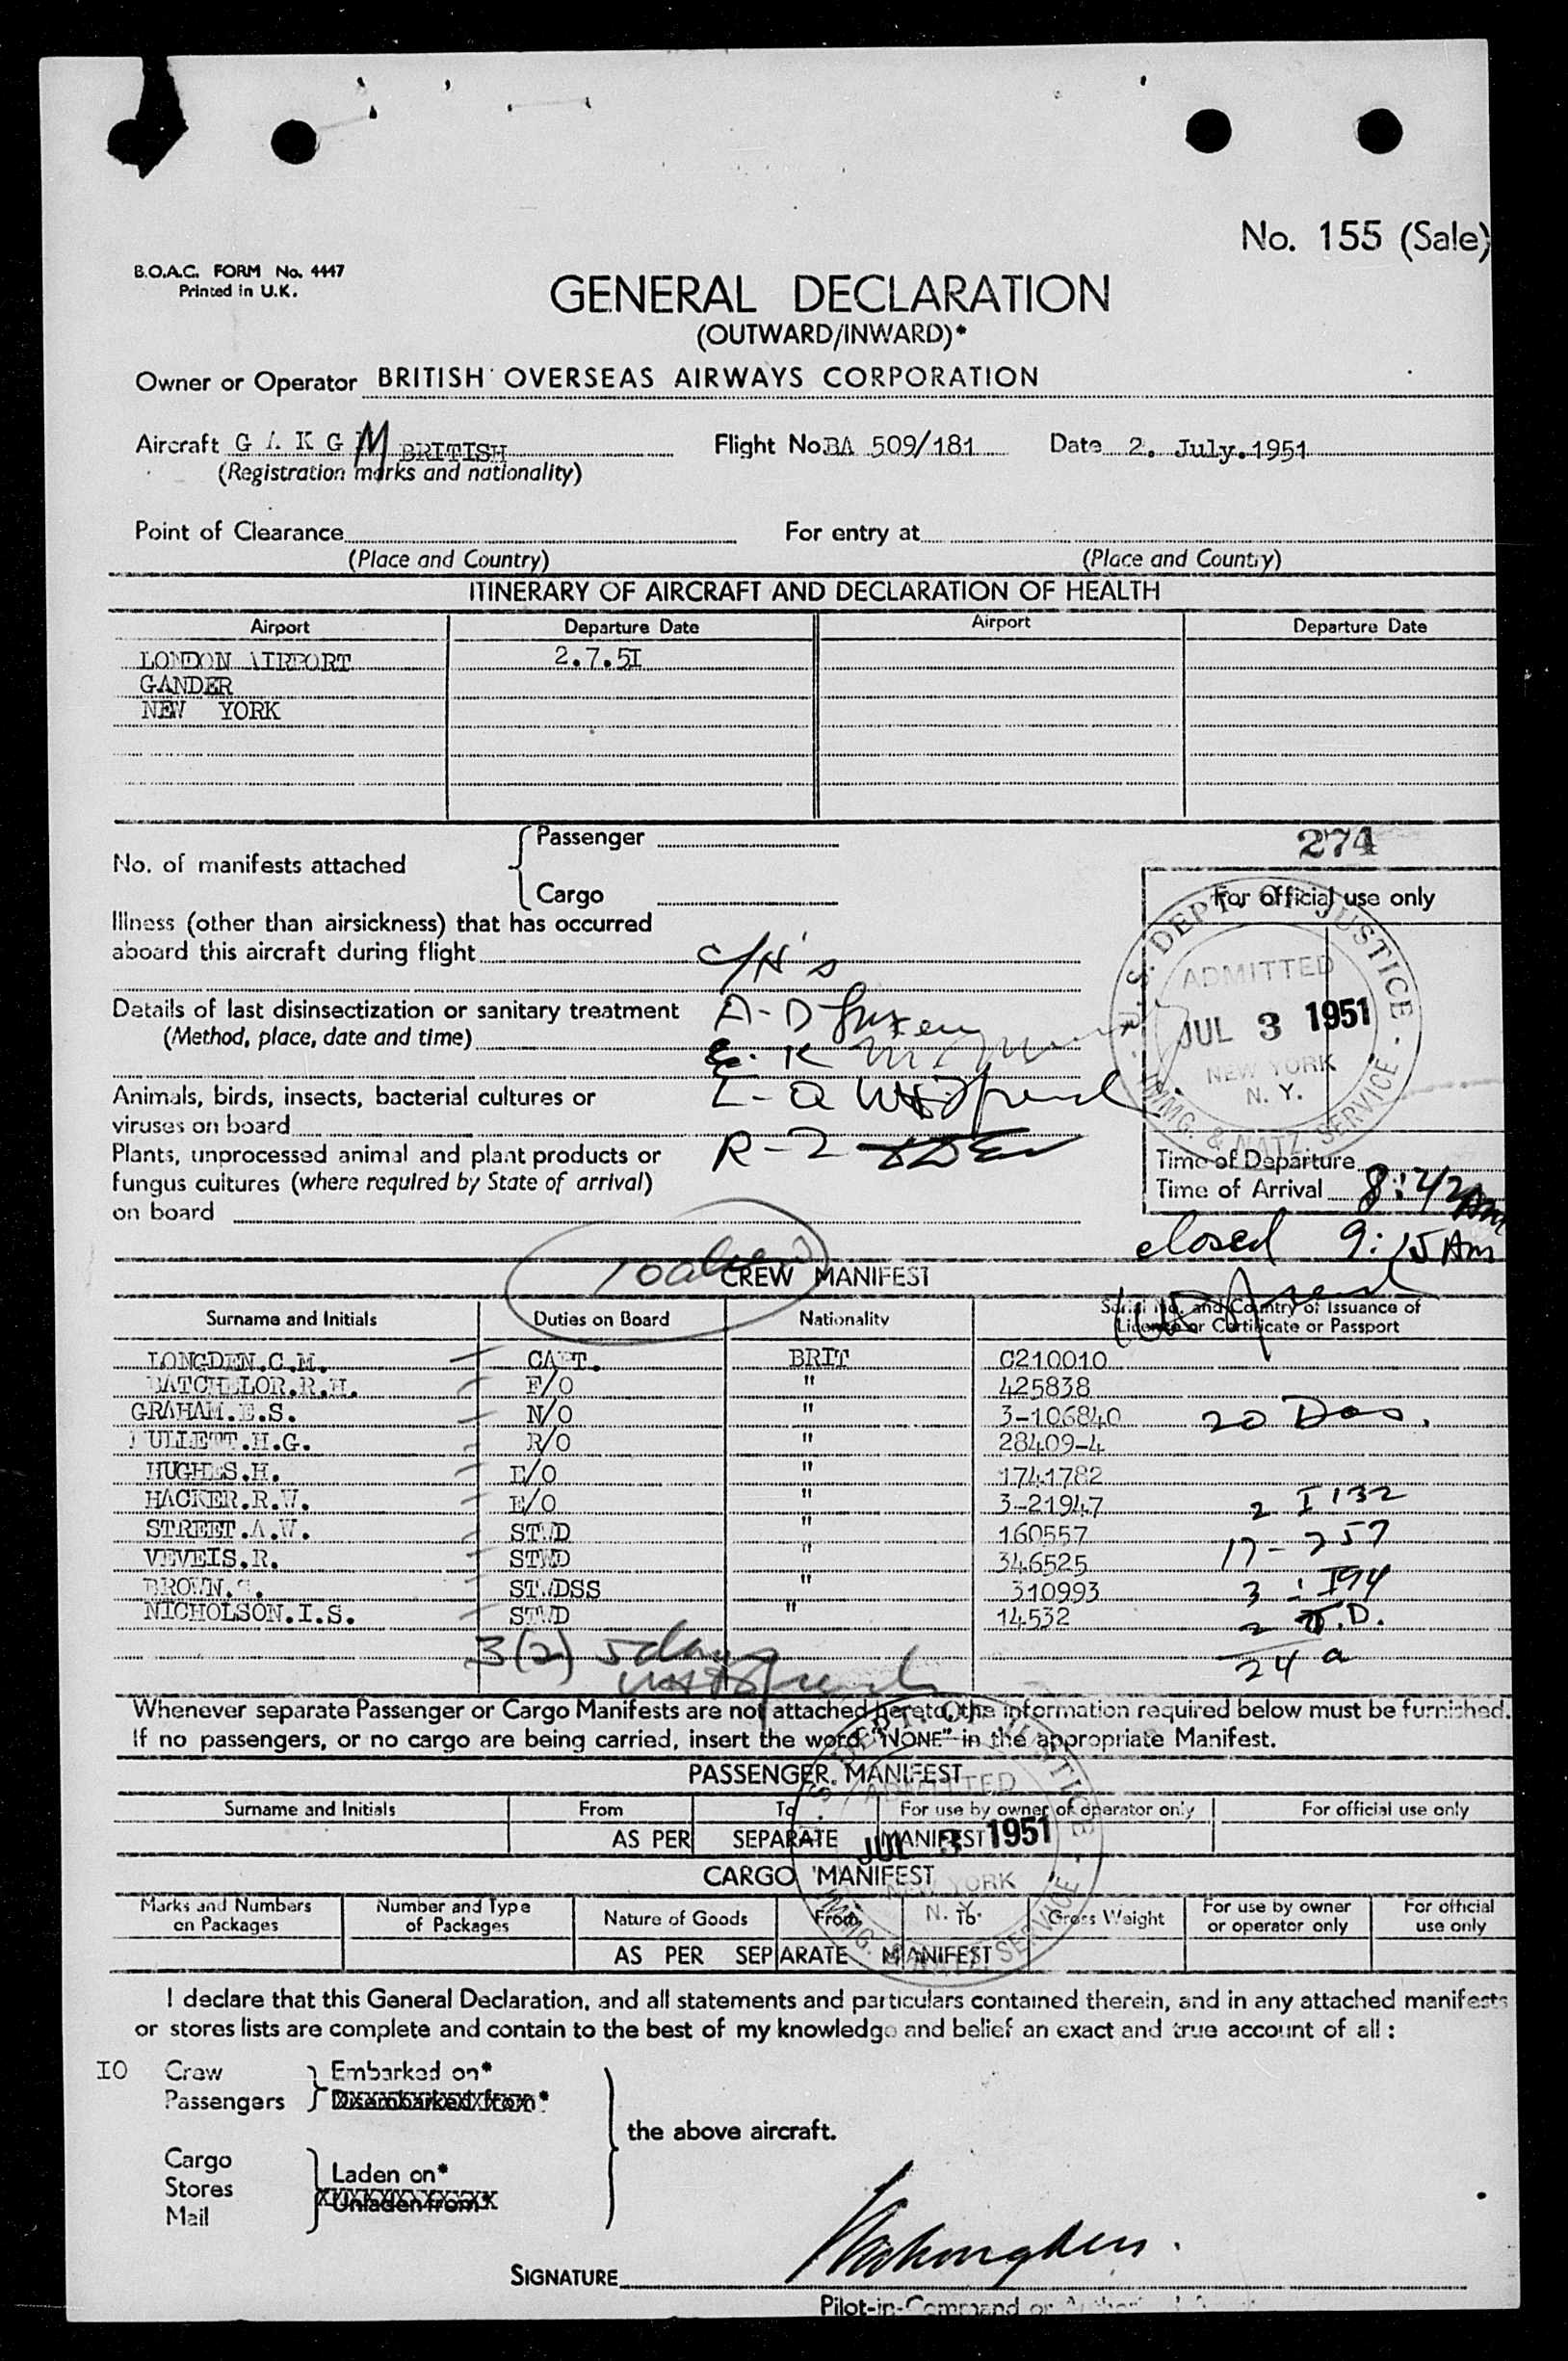 No. 155 (Sale)
B.O.A.C. FORM No. 4447
Printed in U.K.
GENERAL DECLARATION
(OUTWARD/INWARD)*
Owner or Operator BRITISH OVERSEAS AIRWAYS CORPORATION
Aircraft G A K G M BRITISH Flight No. BA 509/181 Date 2. July. 1951
(Registration marks and nationality)
Point of Clearance For entry at
(Place and Country) (Place and Country)
ITINERARY OF AIRCRAFT AND DECLARATION OF HEALTH
Airport Departure Date Airport Departure Date
LONDON AIRPORT 2.7.5I
GANDER
NEW YORK
No. of manifests attached Passenger
Cargo
274
For official use only
U.S. DEPT. OF JUSTICE
ADMITTED
JUL 3 1951
NEW YORK
N. Y.
IMMG. & NATZ. SERVICE
Illness (other than airsickness) that has occurred
aboard this aircraft during flight
Details of last disinsectization or sanitary treatment A-D
(Method, place, date and time) E. K
Animals, birds, insects, bacterial cultures or L-Q
viruses on board
Plants, unprocessed animal and plant products or R-Z
fungus cultures (where required by State of arrival)
on board
Time of Departure
Time of Arrival 8:42 AM
closed 9:15 AM
CREW MANIFEST
Surname and Initials Duties on Board Nationality Serial No. and Country of Issuance of
Licence or Certificate or Passport
LONGDEN.C.M. CAPT. BRIT C210010
BATCHELOR.R.H. F/O " 425838
GRAHAM.E.S. N/O " 3-106840 20
PULLETT.H.G. R/O " 28409-4
HUGHES.H. E/O " 1741782
HACKER.R.W. E/O " 3-21947 2 I 132
STREET.A.W. STWD " 160557 17- 257
VEVEIS.R. STWD " 346525
BROWN. STWDSS " 310993 3 : I94
NICHOLSON.I.S. STWD " 14532 2 .D.
3(2) 5 days 24 a
Whenever separate Passenger or Cargo Manifests are not attached hereto, the information required below must be furnished.
If no passengers, or no cargo are being carried, insert the word "NONE" in the appropriate Manifest.
PASSENGER MANIFEST
Surname and Initials From To For use by owner or operator only For official use only
AS PER SEPARATE MANIFEST
ADMITTED
JUL 3 1951
CARGO MANIFEST
NEW YORK
N. Y.
Marks and Numbers on Packages Number and Type of Packages Nature of Goods From To Gross Weight For use by owner or operator only For official use only
AS PER SEPARATE MANIFEST
I declare that this General Declaration, and all statements and particulars contained therein, and in any attached manifests
or stores lists are complete and contain to the best of my knowledge and belief an exact and true account of all :
IO Crew Embarked on*
Passengers Disembarked from*
the above aircraft.
Cargo Laden on*
Stores Unladen from*
Mail
SIGNATURE
Pilot-in-Command or